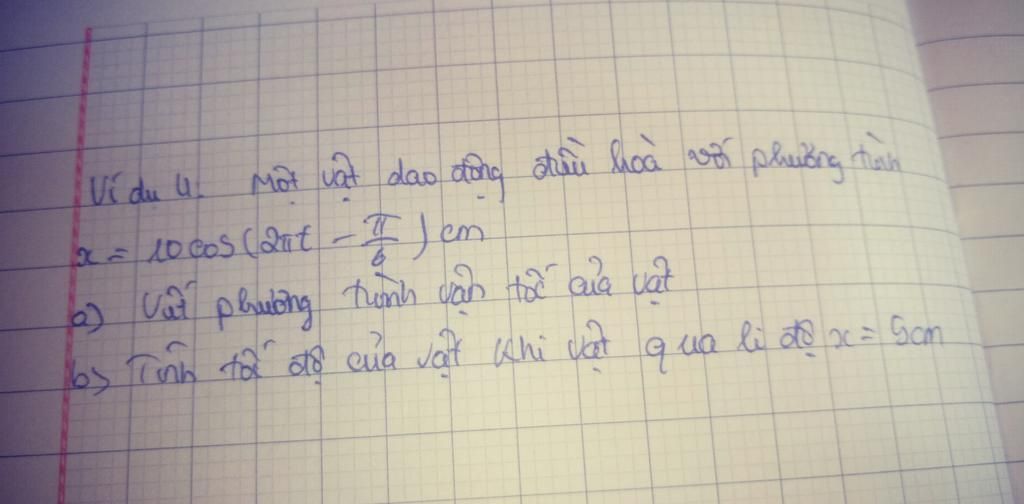 Ví dụ 4: Một vật dao động điều hoà với phương trình
x = 10 cos(2πt - π/6) cm
a) Viết phương trình vận tốc của vật
b) Tính tốc độ của vật khi vật qua li độ x = 5cm